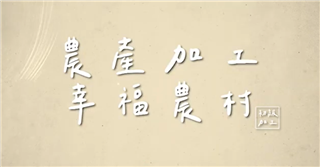 農產加工
幸福農村